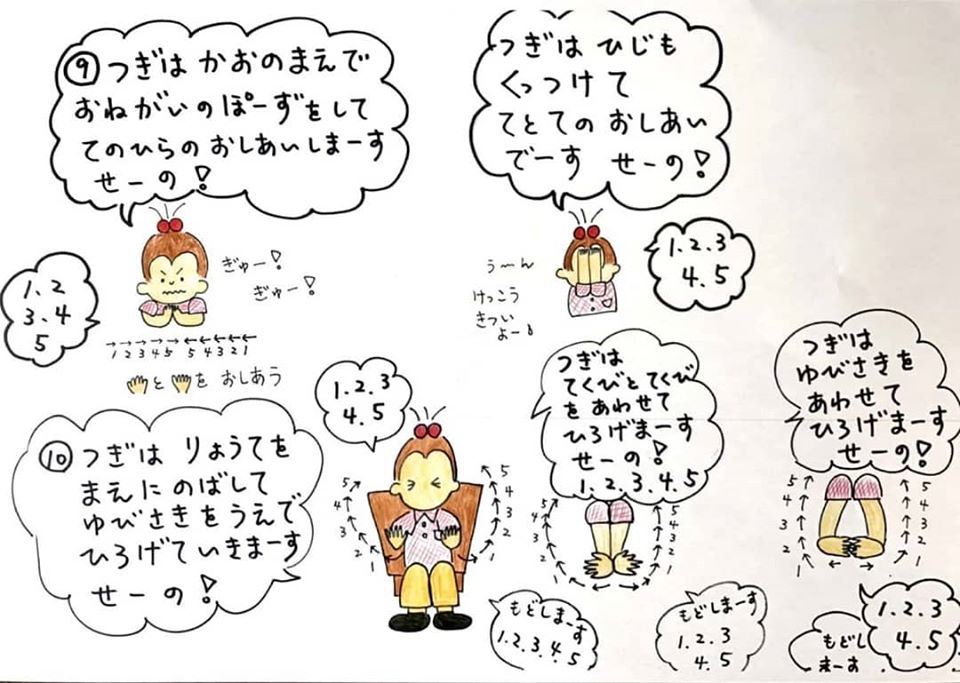 ⑨つぎは かおのまえで
おねがいのぽーずをして
てのひらの おしあいしまーす
せーの!
1.2
3.4
5
ぎゅー!
ぎゅー!
→→→→→←←←←←
1 2 3 4 5 5 4 3 2 1
と を おしあう
つぎは ひじも
くっつけて
てとての おしあい
でーす せーの!
う〜ん
けっこう
きつい
よー
1.2.3
4.5
⑩つぎは りょうてを
まえに のばして
ゆびさきをうえで
ひろげていきまーす
せーの!
1.2.3
4.5
5
4
3
2
1
5
4
3
2
1
もどしまーす
1.2.3.4.5
つぎは
てくびとてくび
をあわせて
ひろげまーす
せーの!
1.2.3.4.5
5
4
3
2
1
5
4
3
2
1
もどしまーす
1.2.3
4.5
つぎは
ゆびさきを
あわせて
ひろげまーす
せーの!
5
4
3
2
1
5
4
3
2
1
もどし
まーす
1.2.3
4.5